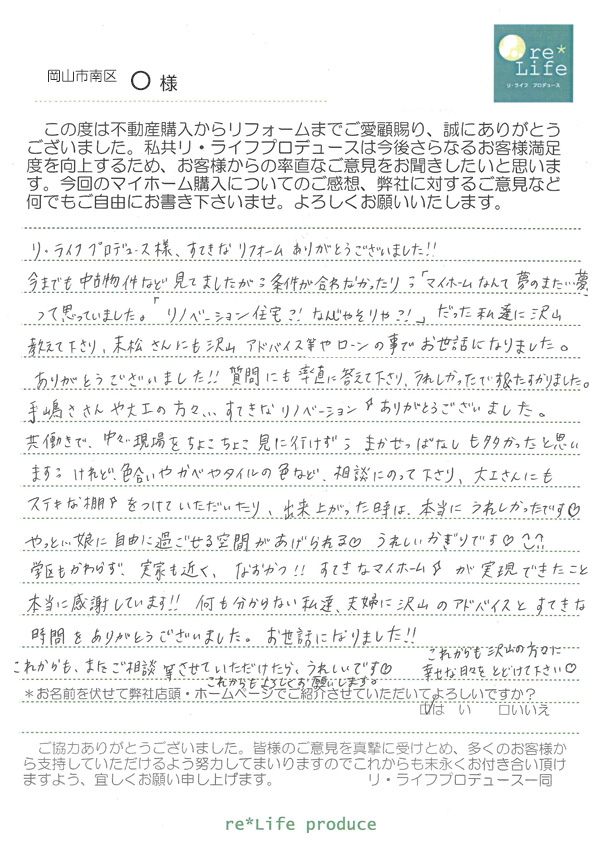 re*
Life
リ・ライフ プロデュース
岡山市南区 〇 様
この度は不動産購入からリフォームまでご愛顧賜り、誠にありがとう
ございました。私共リ・ライフプロデュースは今後さらなるお客様満足
度を向上するため、お客様からの率直なご意見をお聞きしたいと思いま
す。今回のマイホーム購入についてのご感想、弊社に対するご意見など
何でもご自由にお書き下さいませ。よろしくお願いいたします。
リ・ライフプロデュース様、すてきなリフォームありがとうございました!!
今までも中古物件など見てましたが 条件が合わなかったり 「マイホームなんて夢のまた…夢
って思っていました。「リノベーション住宅?! なんじゃそりゃ?!」だった私達に沢山
教えて下さり、末松さんにも沢山アドバイス等やローンの事でお世話になりました。
ありがとうございました!! 質問にも率直に答えて下さり、うれしかったです 助かりました。
手嶋さんや大工の方々… すてきなリノベーション ありがとうございました。
共働きで、中々現場をちょこちょこ見に行けず まかせっぱなしも多かったと思い
ます けれど、色合いやかべやタイルの色など、相談にのって下さり、大工さんにも
ステキな棚 をつけていただいたり、出来上がった時は、本当にうれしかったです♡
やっと… 娘に自由に過ごせる空間があげられる♡ うれしいかぎりです♡
学区もかわらず、実家も近く、なおかつ!! すてきなマイホーム が実現できたこと
本当に感謝しています!! 何も分からない私達、夫婦に沢山のアドバイスとすてきな
時間をありがとうございました。お世話になりました!!
これからも、またご相談等させていただけたら、うれしいです♡
これからもよろしくお願いします。
これからも沢山の方々に
幸せな日々をとどけて下さい♡
*お名前を伏せて弊社店頭・ホームページでご紹介させていただいてよろしいですか?
☑は い □いいえ
ご協力ありがとうございました。皆様のご意見を真摯に受けとめ、多くのお客様か
ら支持していただけるよう努力してまいりますのでこれからも末永くお付き合い頂け
ますよう、宜しくお願い申し上げます。 リ・ライフプロデュース一同
re*Life produce